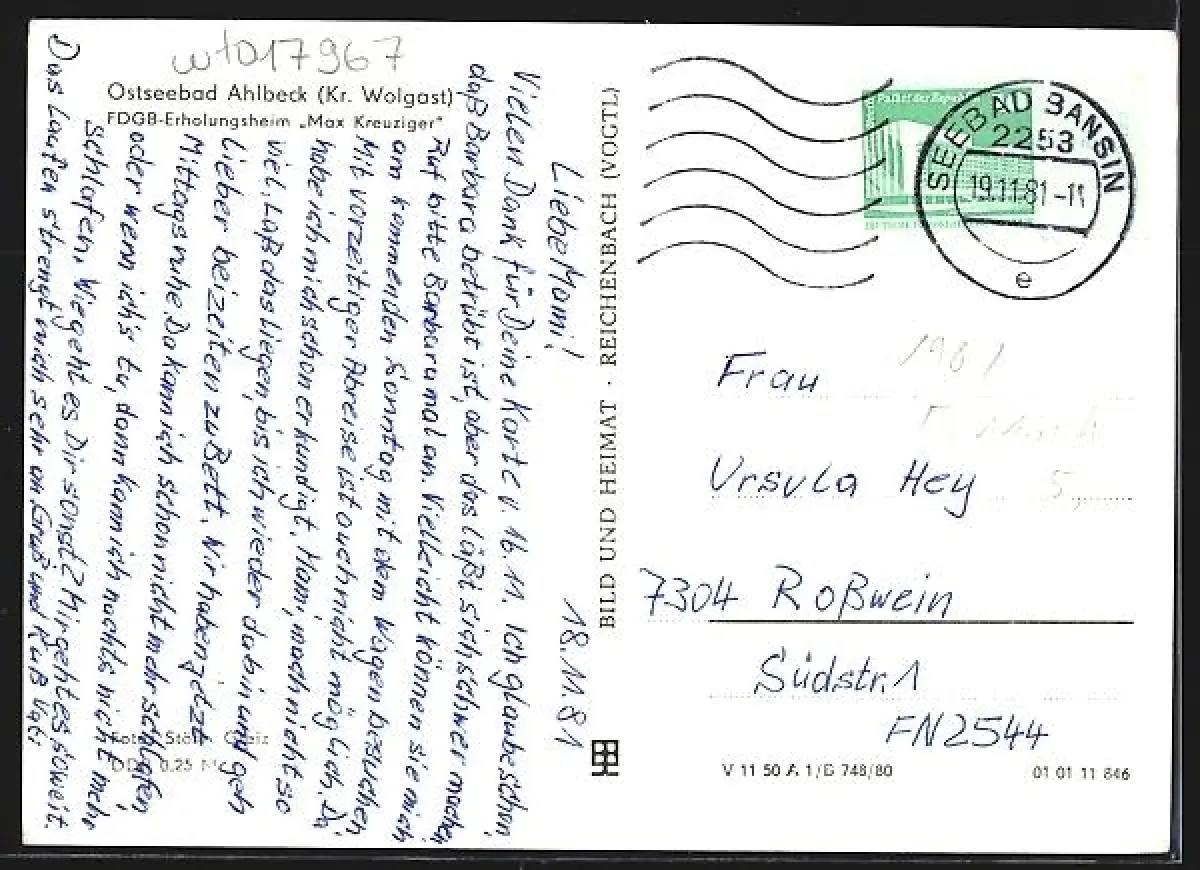 wto17967
Ostseebad Ahlbeck (Kr. Wolgast)
FDGB-Erholungsheim „Max Kreuziger"
18.11.81
Liebe Mami!
Vielen Dank für Deine Karte v. 16.11. Ich glaube schon,
daß Barbara betrübt ist, aber das läßt sich schwer machen.
Ruf bitte Barbara mal an. Vielleicht können sie mich
am kommenden Sonntag mit dem Wagen besuchen
Mit vorzeitiger Abreise ist auch nicht möglich. Da
habe ich mich schon erkundigt. Mami, mach nicht so
viel. Laß das liegen, bis ich wieder da bin und geh
lieber beizeiten zu Bett. Wir haben jetzt
Mittagsruhe. Da kann ich schon nicht mehr schlafen,
oder wenn ich's tu, dann kann ich nachts nicht mehr
schlafen. Wie geht es Dir sonst? Mir geht es soweit.
Das Laufen strengt mich sehr an. Gruß und Kuß
Foto: Greiz
0,25 M
BILD UND HEIMAT · REICHENBACH (VOGTL)
Palast der Republik
SEEBAD BANSIN
2253
19.11.81-11
e
1981
Frau
Ursula Hey
5
7304 Roßwein
Südstr. 1
FN2544
V 11 50 A 1/B 748/80
01 01 11 846